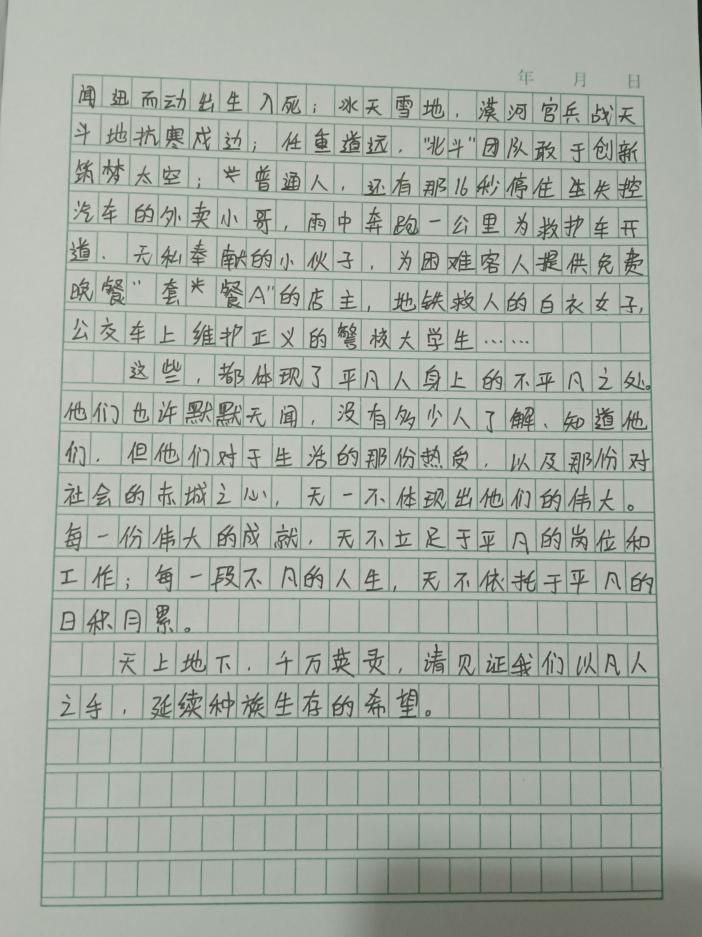 年 月 日
闻迅而动出生入死；冰天雪地，漠河官兵战天
斗地抗寒戍边；任重道远，“北斗”团队敢于创新
筑梦太空；普通人，还有那16秒停住失控
汽车的外卖小哥，雨中奔跑一公里为救护车开
道、无私奉献的小伙子，为困难客人提供免费
晚餐“套餐A”的店主，地铁救人的白衣女子，
公交车上维护正义的警校大学生……
这些，都体现了平凡人身上的不平凡之处。
他们也许默默无闻，没有多少人了解、知道他
们，但他们对于生活的那份热爱，以及那份对
社会的赤城之心，无一不体现出他们的伟大。
每一份伟大的成就，无不立足于平凡的岗位和
工作；每一段不凡的人生，无不依托于平凡的
日积月累。
天上地下，千万英灵，请见证我们以凡人
之手，延续种族生存的希望。